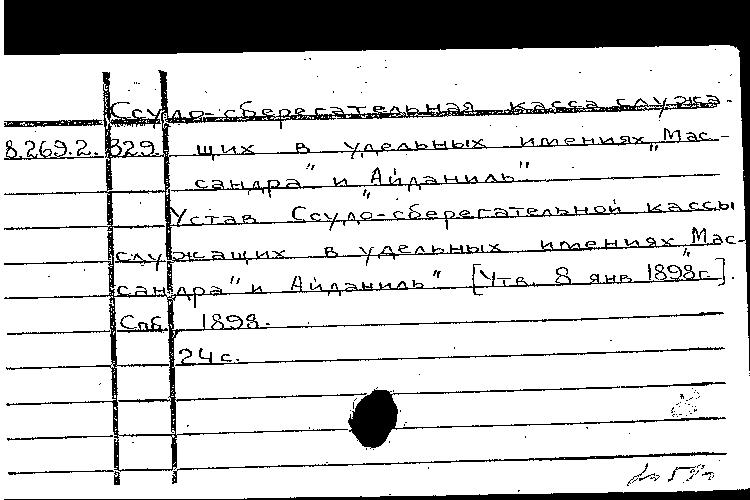 Ссудо-сберегательная касса служа-
8.269.2.329 щих в удельных имениях „Мас-
сандра" и „Айданиль"
Устав Ссудо-сберегательной кассы
служащих в удельных имениях „Мас-
сандра" и „Айданиль" [Утв. 8 янв 1898г].
Спб., 1898.
24 с.